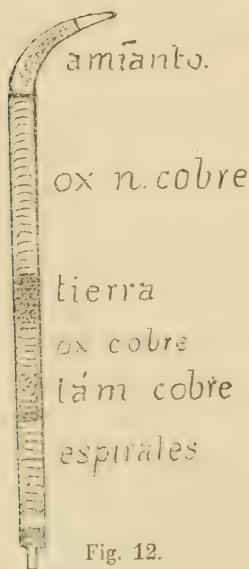 amianto.
ox n. cobre
tierra
ox cobre
lám cobre
espirales
Fig. 12.